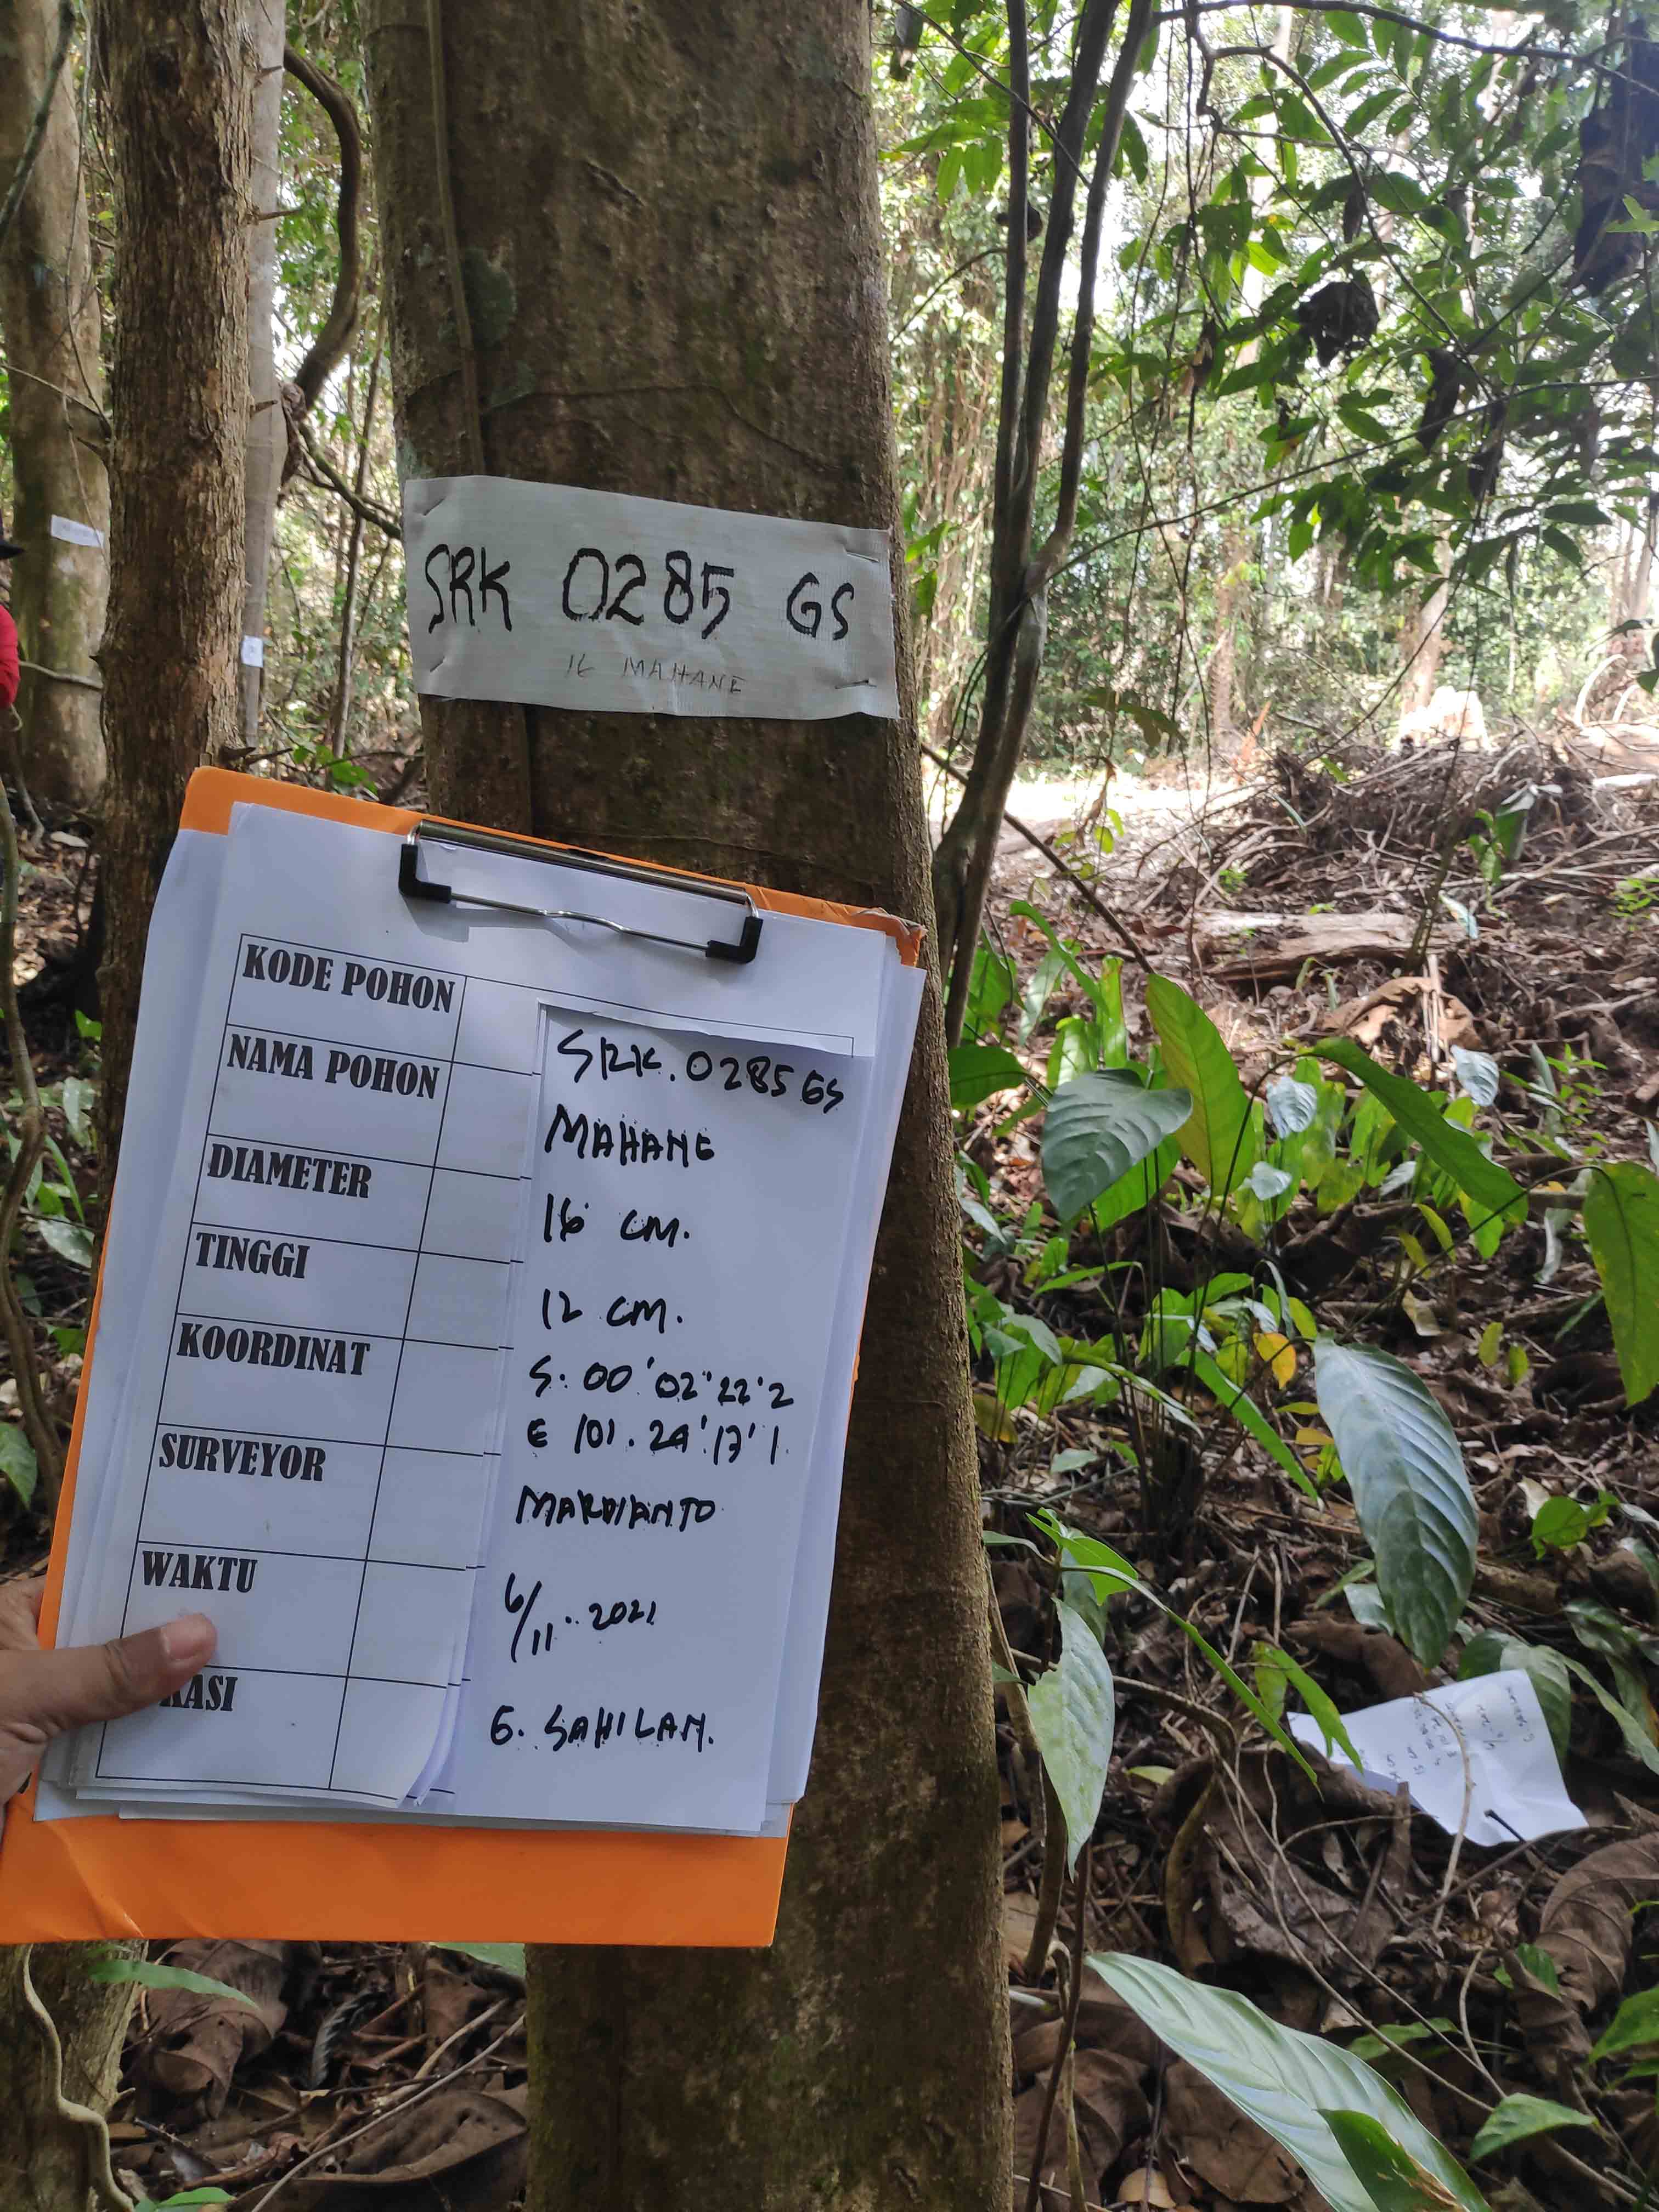 SRK 0285 GS
16 MAHANE
KODE POHON SRK. 0285 GS
NAMA POHON MAHANE
DIAMETER 16 CM.
TINGGI 12 CM.
KOORDINAT S: 00' 02" 22' 2
E 101. 24' 17' 1
SURVEYOR MARDIANTO
WAKTU 6/11-2021
KASI G. SAHILAN.